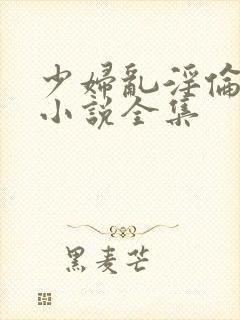 少婦亂淫倫
小說全集
黑麦芒